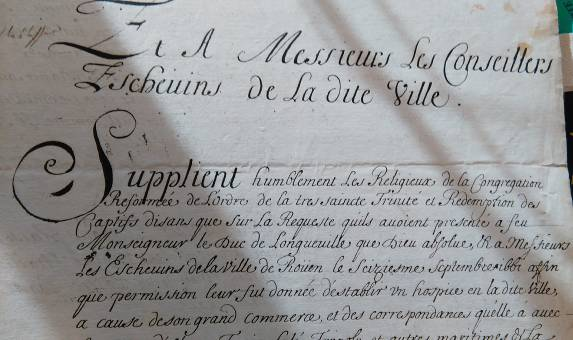 Et A Messieurs Les Conseillers
Escheuins de La dite Ville.
Supplient humblement Les Religieux de la Congregation
Reformée de L'ordre de la tres saincte Trinite et Redemption des
Captifs disans que sur La Requeste quils auoient presenté a feu
Monseigneur le Duc de Longueuille que Dieu absolue, & a Messieurs
Les Escheuins de la Ville de Rouen le seiziesme Septembre 1661 affin
que permission leur fut donnée d'establir vn hospice en la dite Ville,
a cause de son grand commerce, et des correspondances qu'elle a auec
et autres maritimes